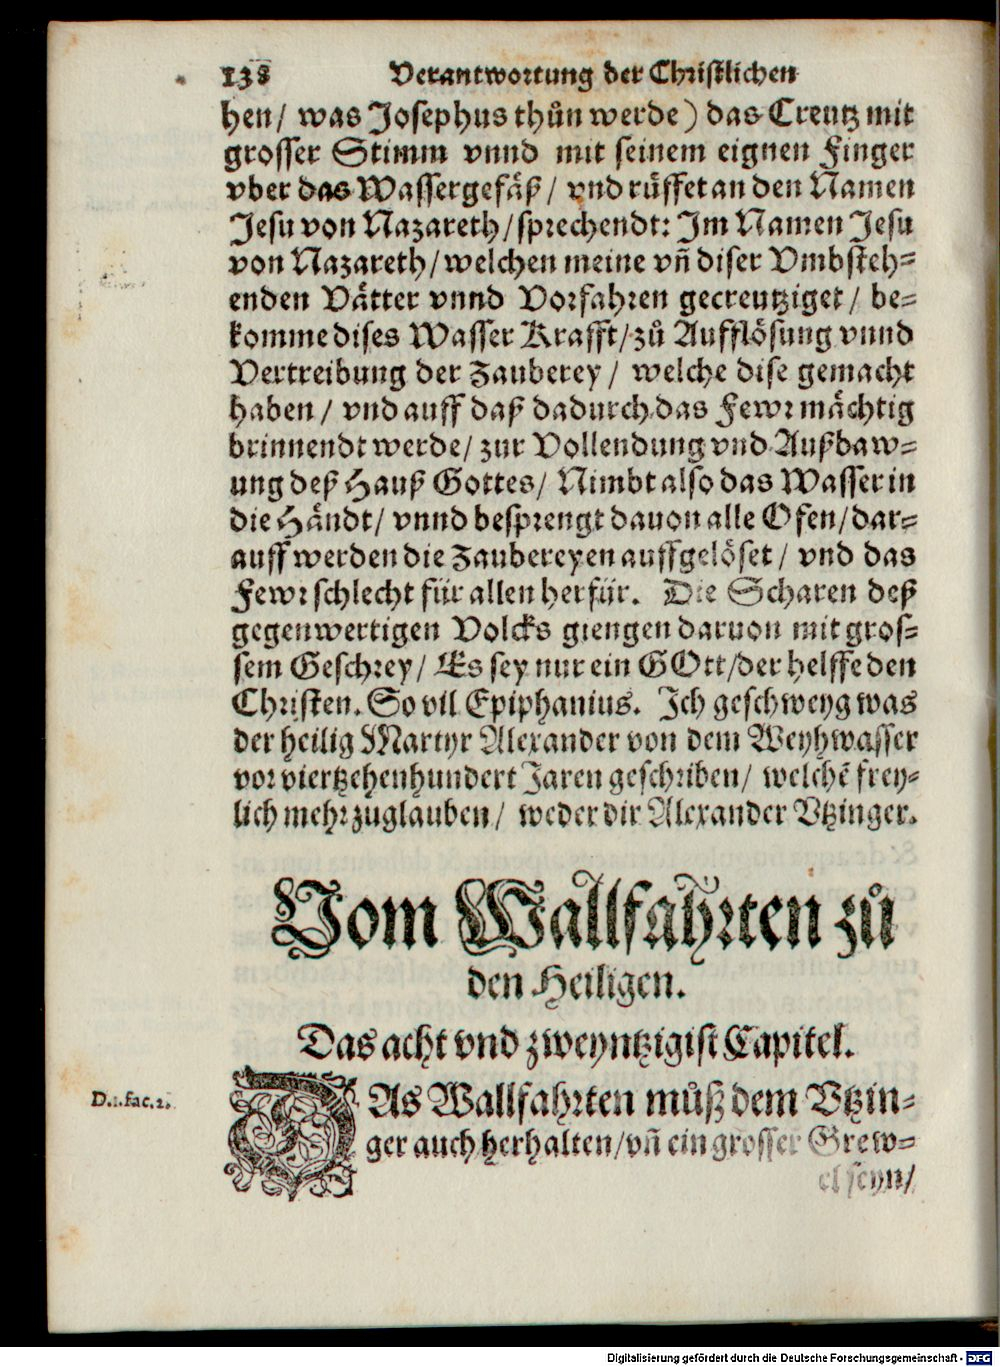 138 Verantwortung der Christlichen
hen/ was Josephus thůn werde) das Creutz mit
grosser Stimm vnnd mit seinem eignen Finger
vber das Wassergefäß/ vnd rüffet an den Namen
Jesu von Nazareth/ sprechendt: Im Namen Jesu
von Nazareth/ welchen meine vñ diser Vmbsteh⸗
enden Vätter vnnd Vorfahren gecreutziget/ be⸗
komme dises Wasser Krafft/ zů Aufflösung vnnd
Vertreibung der Zauberey/ welche dise gemacht
haben/ vnd auff daß dadurch das Fewr mächtig
brinnendt werde/ zur Vollendung vnd Außbaw⸗
ung deß Hauß Gottes/ Nimbt also das Wasser in
die Händt/ vnnd besprengt dauon alle Ofen/ dar⸗
auff werden die Zaubereyen auffgelöset/ vnd das
Fewr schlecht für allen herfür. Die Scharen deß
gegenwertigen Volcks giengen daruon mit gros⸗
sem Geschrey/ Es sey nur ein GOtt/ der helffe den
Christen. So vil Epiphanius. Ich geschweyg was
der heilig Martyr Alexander von dem Weyhwasser
vor viertzehenhundert Jaren geschriben/ welchē frey⸗
lich mehr zuglauben/ weder dir Alexander Vtzinger.
Vom Wallfahrten zů
den Heiligen.
Das acht vnd zweyntzigist Capitel.
D.i.fac.2.
DAs Wallfahrten můß dem Vtzin⸗
ger auch herhalten/ vñ ein grosser Grew⸗
el seyn/
Digitalisierung gefördert durch die Deutsche Forschungsgemeinschaft - DFG